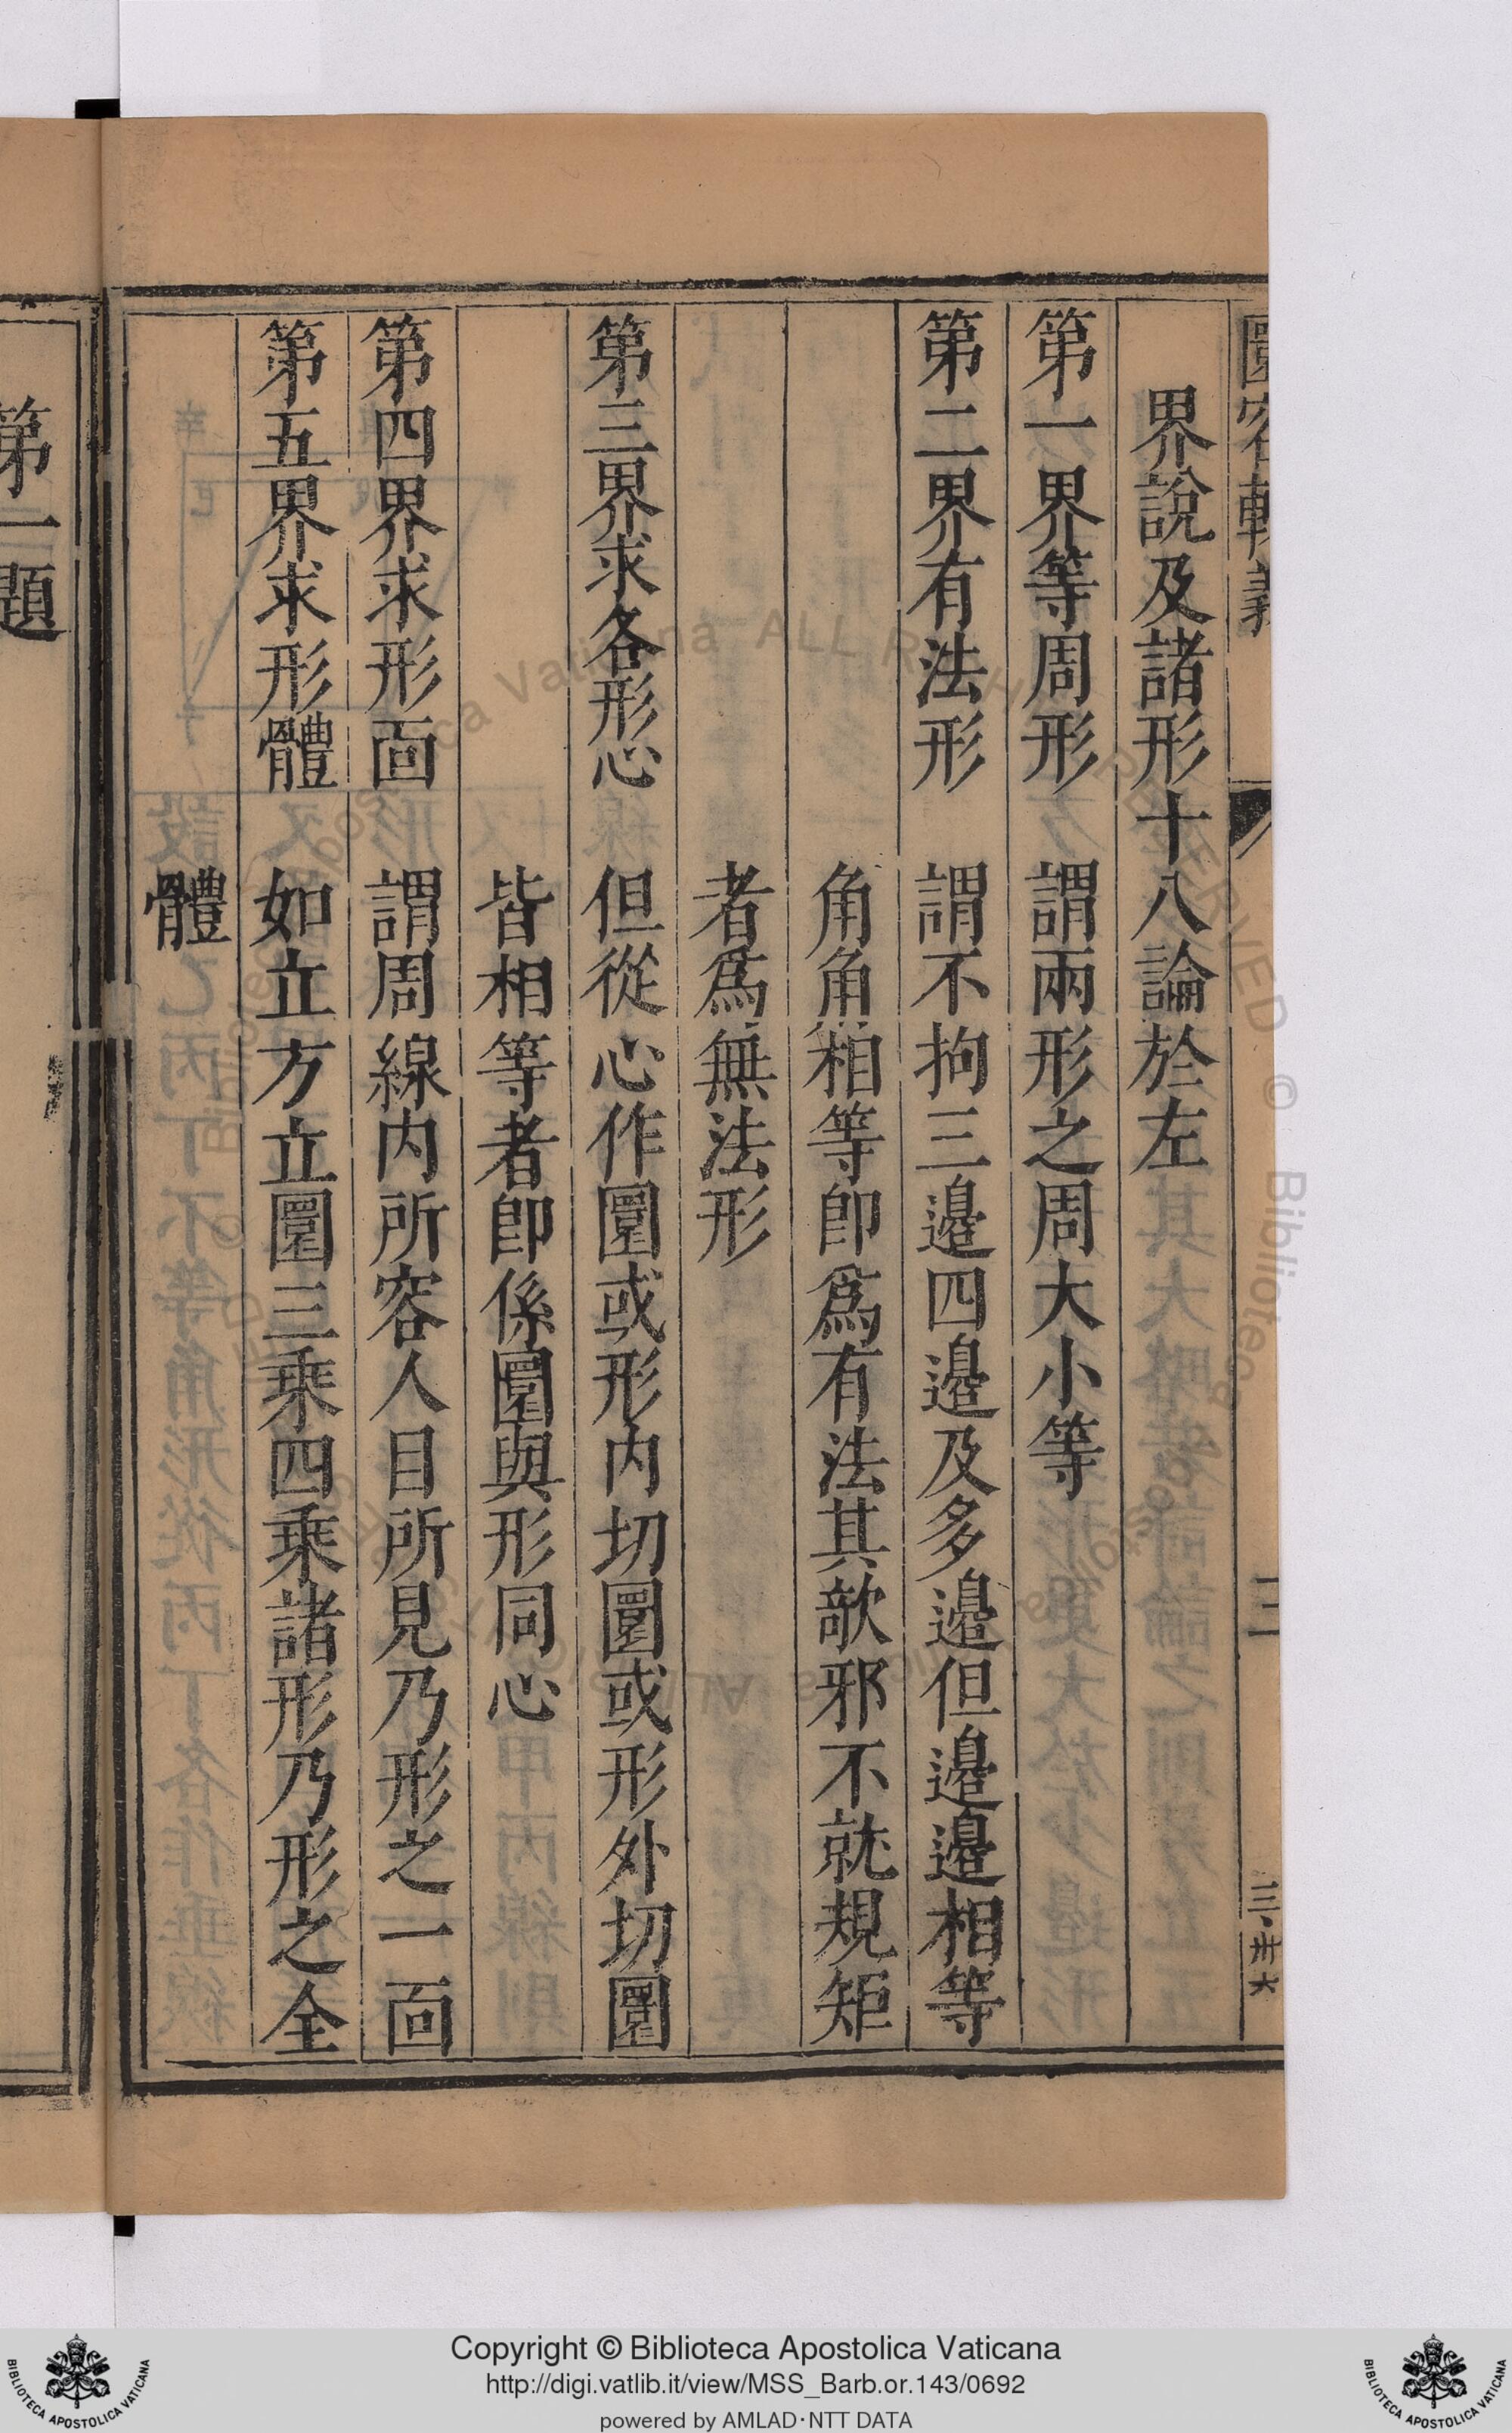 圜容較義
二
三卅六
界說及諸形十八論於左
第一界等周形　謂兩形之周大小等
第二界有法形　謂不拘三邊四邊及多邊但邊邊相等
角角相等卽爲有法其欹邪不就規矩
者爲無法形
第三界求各形心　但從心作圜或形內切圜或形外切圜
皆相等者卽係圜與形同心
第四界求形面　謂周線內所容人目所見乃形之一面
第五界求形體　如立方立圜三乘四乘諸形乃形之全
體
第一題
Copyright © Biblioteca Apostolica Vaticana
http://digi.vatlib.it/view/MSS_Barb.or.143/0692
powered by AMLAD·NTT DATA
BIBLIOTECA APOSTOLICA VATICANA
BIBLIOTECA APOSTOLICA VATICANA